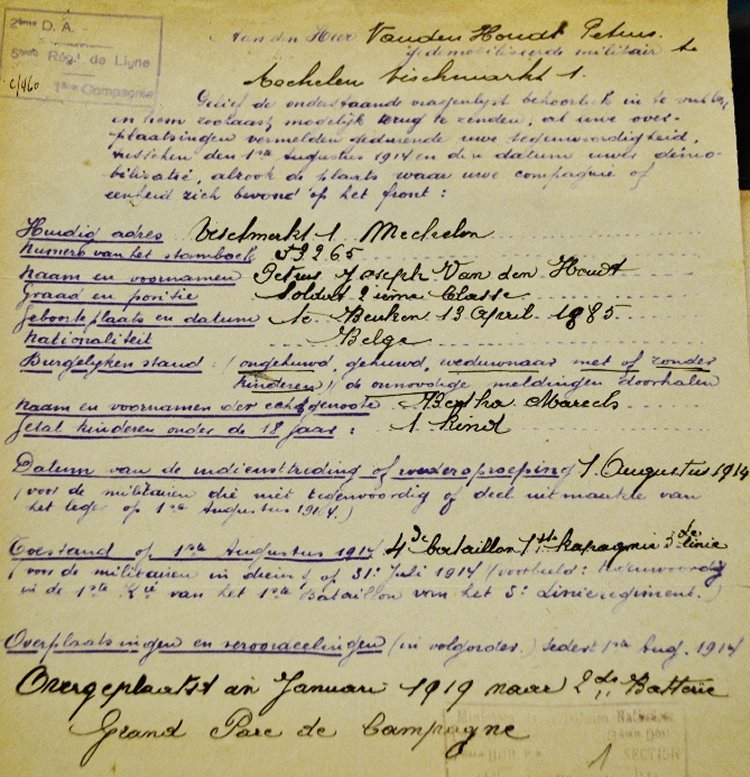 2ème D. A.
5ème Régt de Ligne
1ère Compagnie
c/460
Aan den Heer Vanden Houdt Petrus.
Gedemobiliseerde militair te
Mechelen Vischmarkt 1.
Gelief de onderstaande vragenlyst behoorlyk in te vullen
en hem zoohaast mogelijk terug te zenden, al uwe over-
plaatsingen vermelden gedurende uwe tegenwoordigheid,
tusschen den 1ste Augustus 1914 en den datum uwer démo-
bilisatie, alsook de plaats waar uwe compagnie of
eenheid zich bevond op het front :
Huidig adres Vischmerkt 1 Mechelen
Numero van het stamboek 59265
Naam en voornamen Petrus Joseph Van den Houdt
Graad en positie Soldat 2ième Classe
Geboorteplaats en datum te Beuken 13 April 1885
Nationaliteit Belge
Burgelyken stand : (ongehuwd, gehuwd, weduwnaar met of zonder
kinderen) (de onnoodige meldingen doorhalen
Naam en voornamen der echtgenoote Bertha Marechs
Getal kinderen onder de 18 jaar : 1 kind
Datum van de indiensttreding of wederoproeping 1 Augustus 1914
(voor de militairen die niet tegenwoordig of deel uitmaakte van
het leger op 1ste Augustus 1914.)
Toestand op 1ste Augustus 1914 4de bataillon 1ste kapagnie 5de linie
(voor de militairen in dienst op 31e Juli 1914 (voorbeeld : tegenwoordig
in de 1ste Kie van het 1ste Bataillon van het 5e Linieregiment.)
Overplaatsingen en veroordeelingen (in volgorder) sedert 1ste Aug. 1914
Overgeplaatst in Januari 1919 naar 2de Batterie
Grand Parc de Campagne
SECTION
1